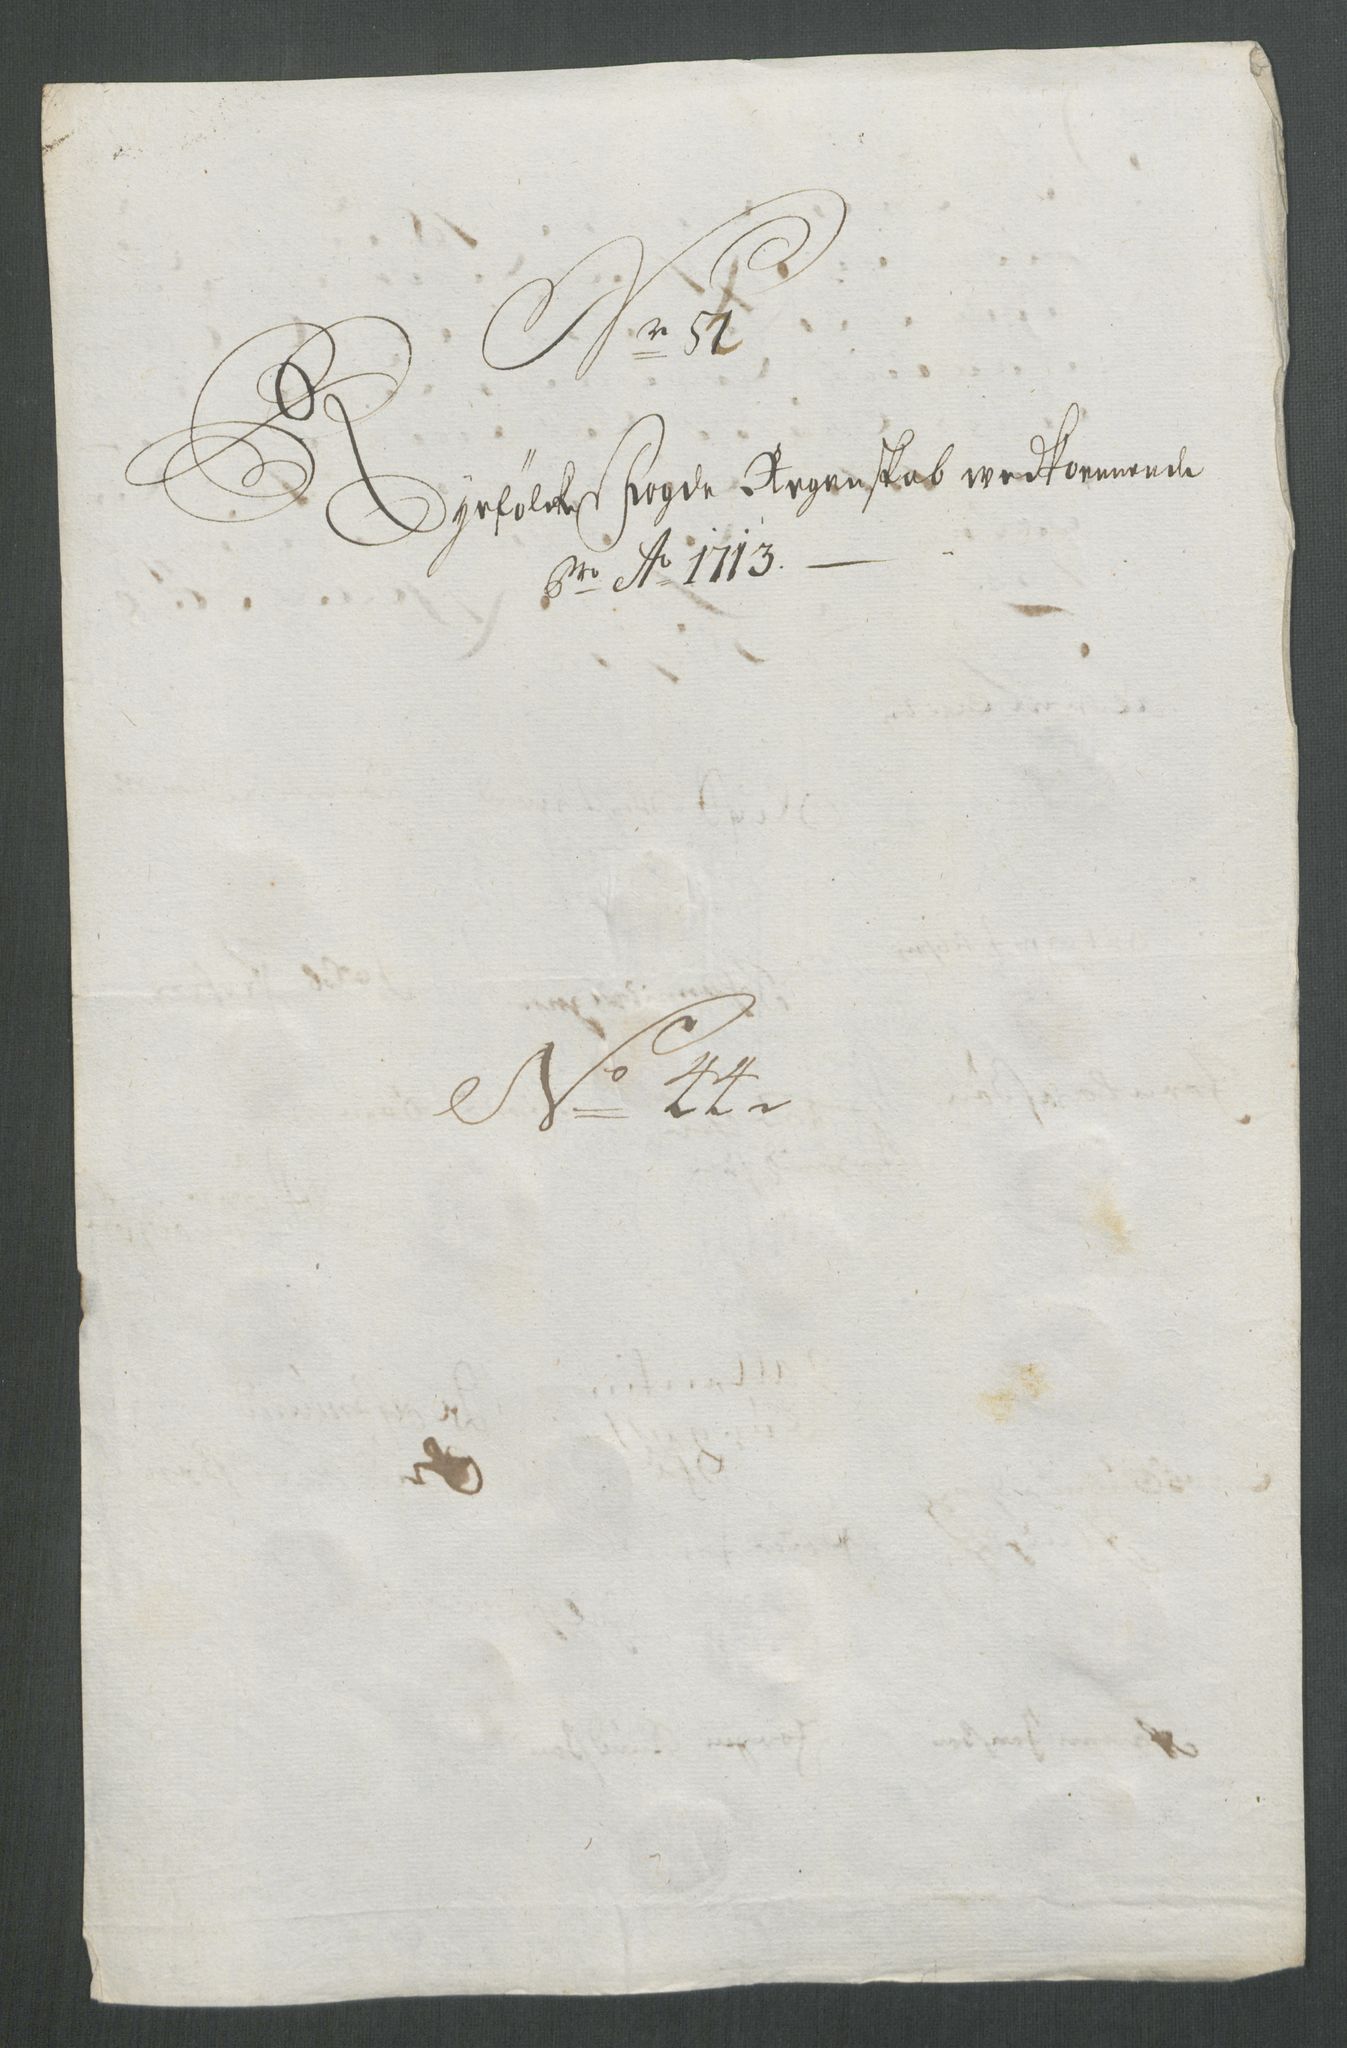 Nr 51
Ryefölckes Fogde Regenskab wedkommende
pro Ao 1713.
No 44